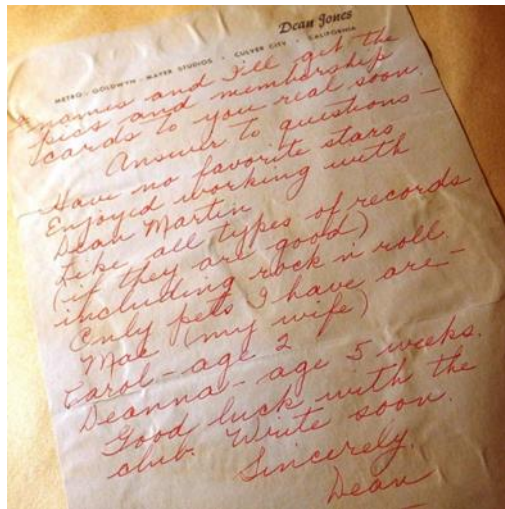 Dean Jones
METRO-GOLDWYN-MAYER STUDIOS • CULVER CITY • CALIFORNIA
names and I'll get the
pics and membership
cards to you real soon.
Answer to questions—
Have no favorite stars
Enjoyed working with
Dean Martin
Like all types of records
(if they are good)
including rock n roll.
Only pets I have are—
Mae (my wife)
Carol—age 2
Deanna—age 5 weeks.
Good luck with the
club. Write soon.
Sincerely,
Dean